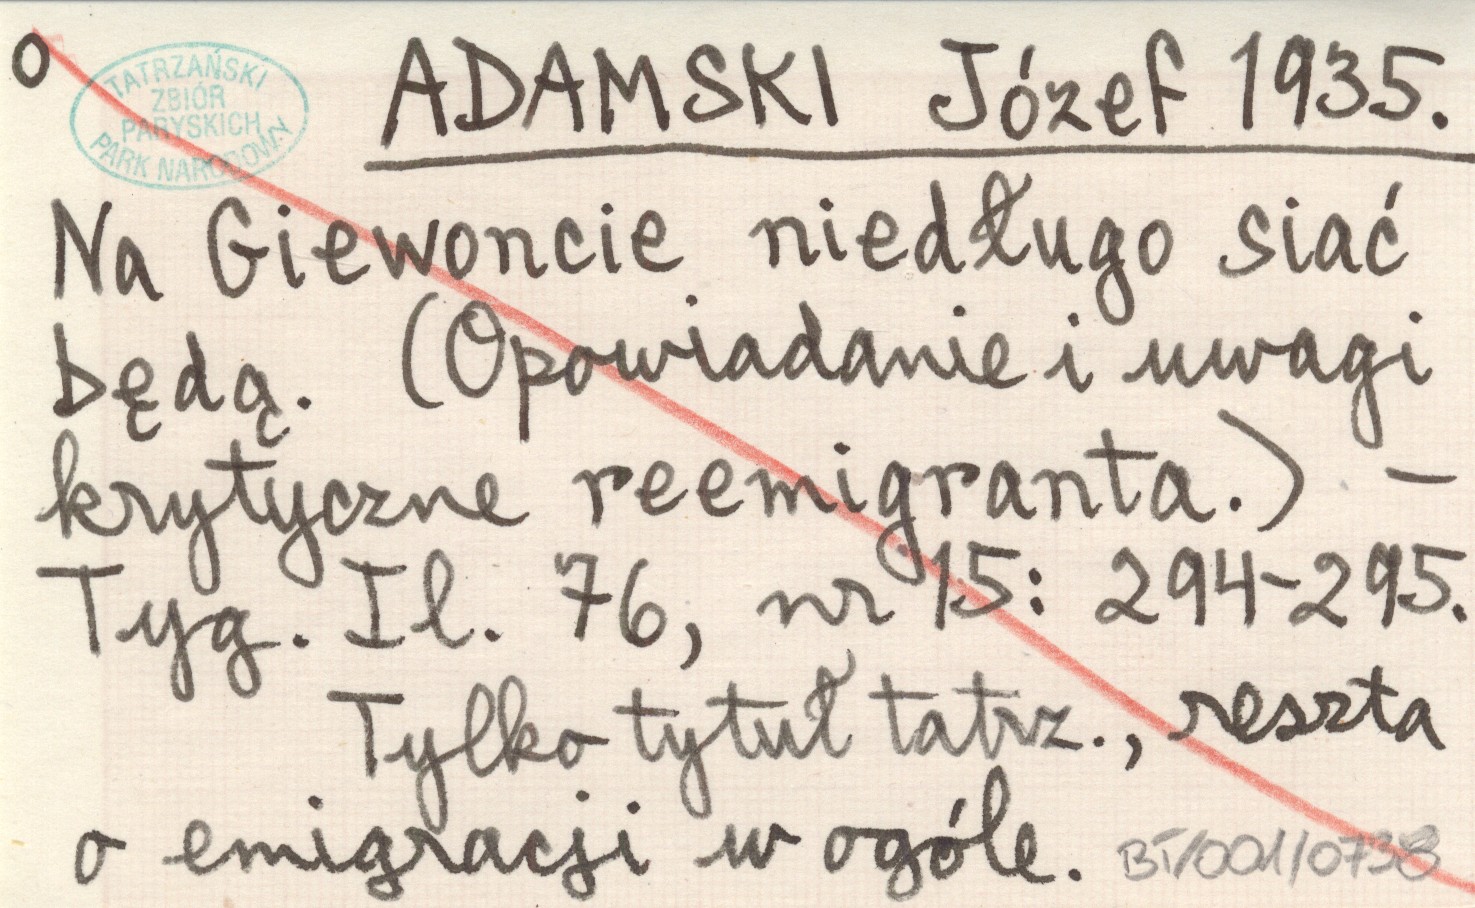 O
TATRZAŃSKI
ZBIÓR
PARYSKICH
PARK NARODOWY
ADAMSKI Józef 1935.
Na Giewoncie niedługo siać
będą. (Opowiadanie i uwagi
krytyczne reemigranta.) –
Tyg. Il. 76, nr 15: 294-295.
Tylko tytuł tatrz., reszta
o emigracji w ogóle.
BT/001/0738